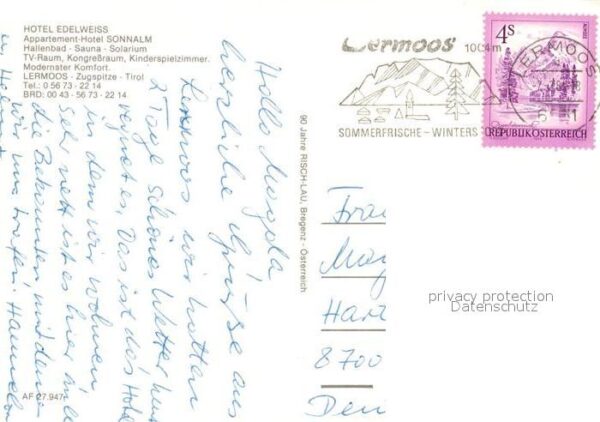 HOTEL EDELWEISS
Appartement-Hotel SONNALM
Hallenbad - Sauna - Solarium
TV-Raum, Kongreßraum, Kinderspielzimmer.
Modernster Komfort.
LERMOOS - Zugspitze - Tirol
Tel.: 0 56 73 - 22 14
BRD: 00 43 - 56 73 - 22 14
Hallo Magda
herzliche Grüße aus
Lermoos wir hatten
2 Tage schönes Wetter
regnet es. Das ist das Hotel
in dem wir wohnen
sehr nett ist es hier
die Bekannten mit denen
wir uns trafen. Hannelore
AF 27.947
90 Jahre RISCH-LAU, Bregenz - Österreich
Lermoos
1004m
SOMMERFRISCHE - WINTERS
LERMOOS
4S
REPUBLIK ÖSTERREICH
Frau
May
Har
8700
privacy protection
Datenschutz